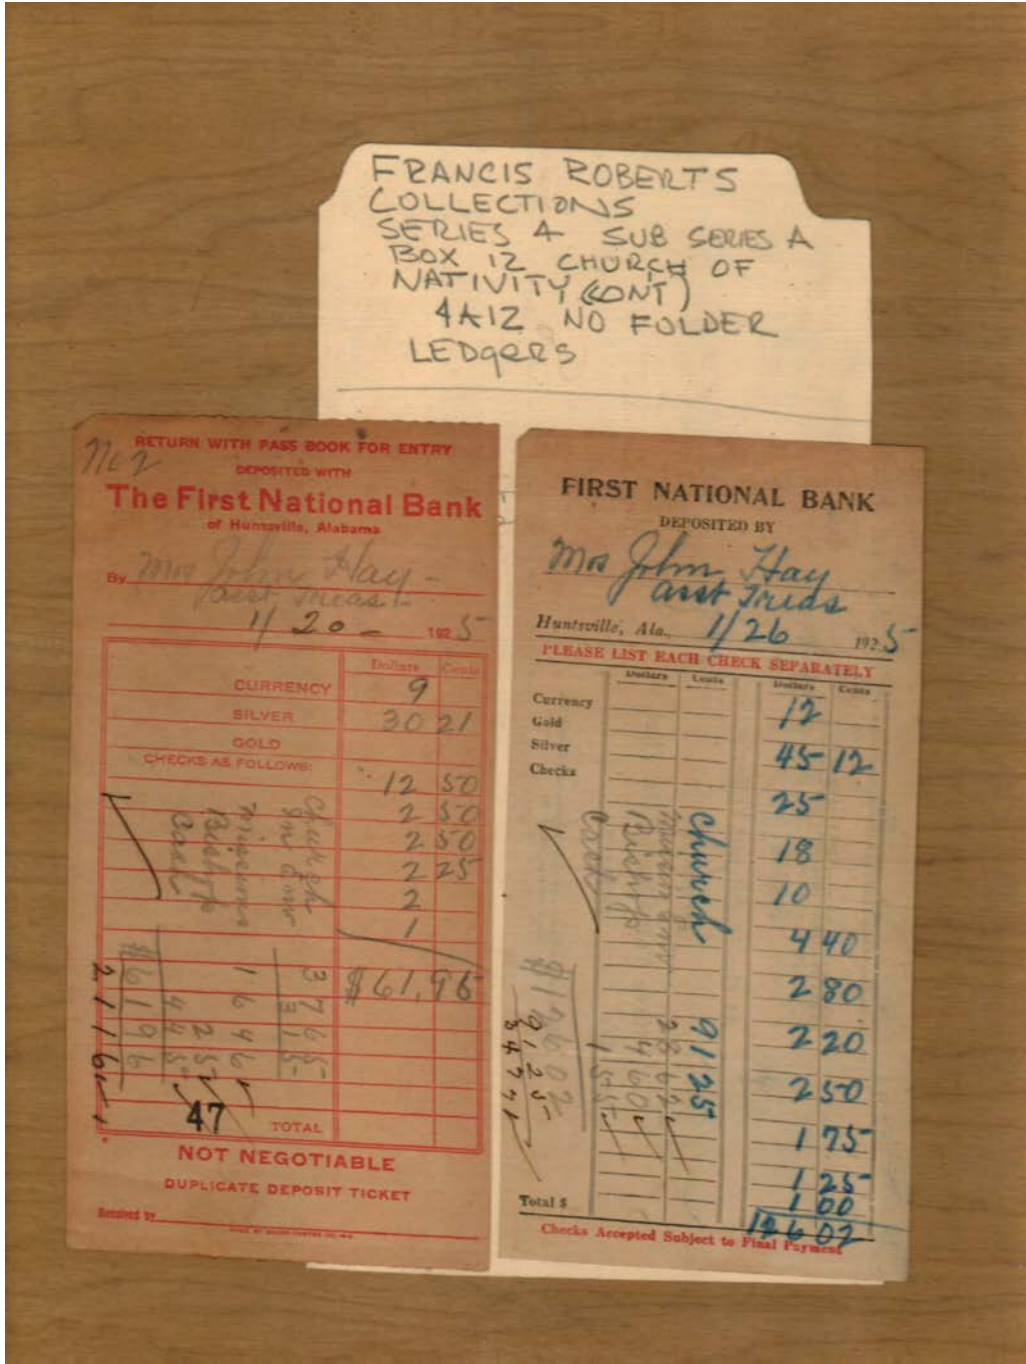 FRANCIS ROBERTS
COLLECTIONS
SERIES 4 SUB SERIES A
BOX 12 CHURCH OF
NATIVITY (CONT)
4A12 NO FOLDER
LEDgeRS
No 2
RETURN WITH PASS BOOK FOR ENTRY
DEPOSITED WITH
The First National Bank
of Huntsville, Alabama
By Mrs John Hay -
Asst Treas -
1/20 - 1925
Dollars Cents
CURRENCY 9
SILVER 30 21
GOLD
CHECKS AS FOLLOWS:
12 50
2 50
2 50
2 25
2
1
$61.96
Church 37 65
3 15
Missions 16 46
Bishop 25
Cash 4 45
$61 96
21 16
47
TOTAL
NOT NEGOTIABLE
DUPLICATE DEPOSIT TICKET
Received by
FIRST NATIONAL BANK
DEPOSITED BY
Mrs John Hay
Asst Treas
Huntsville, Ala., 1/26 1925
PLEASE LIST EACH CHECK SEPARATELY
Dollars Cents Dollars Cents
Currency 12
Gold
Silver 45 12
Checks
25
18
10
4 40
2 80
2 20
2 50
1 75
1 25
1 00
Total $ 126 02
Church 91 25
28 62
Bishop 4 60
Cash 1 55
$126 02
91 25
34 77
Checks Accepted Subject to Final Payment